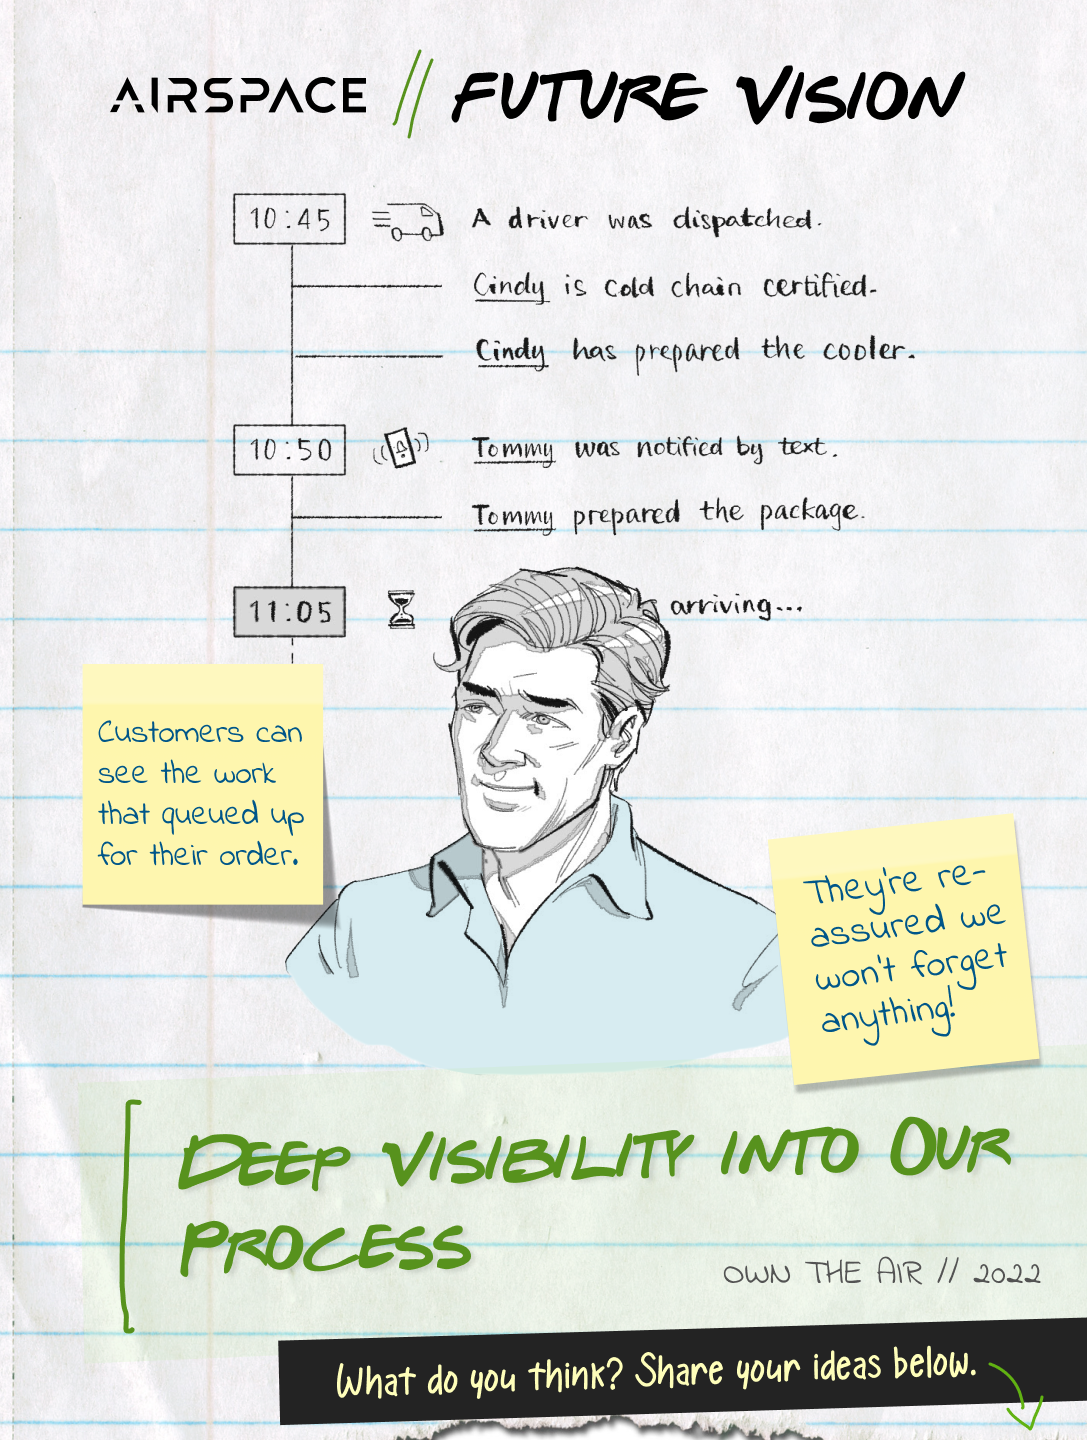 AIRSPACE // FUTURE VISION
10:45 A driver was dispatched.
Cindy is cold chain certified.
Cindy has prepared the cooler.
10:50 Tommy was notified by text.
Tommy prepared the package.
11:05 arriving...
Customers can
see the work
that queued up
for their order.
They're re-
assured we
won't forget
anything!
DEEP VISIBILITY INTO OUR
PROCESS
OWN THE AIR // 2022
What do you think? Share your ideas below.